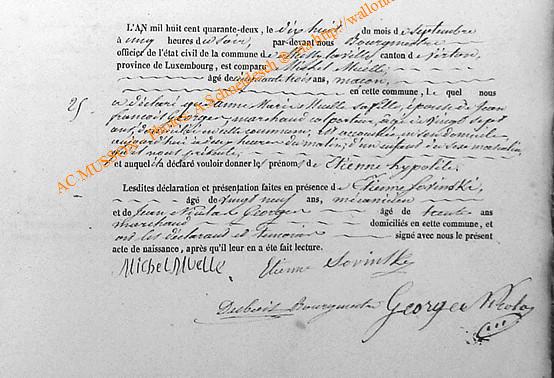 L'AN mil huit cent quarante-deux, le dix huit du mois de septembre
à cinq heures du soir, par-devant nous Bourgmestre
officier de l'état civil de la commune de canton de Virton,
province de Luxembourg, est comparu Michel Muelle
âgé de trois ans, maçon,
en cette commune, lequel nous
25
a déclaré que Anne Marie Muelle sa fille, épouse de Jean
françois Georges, marchand colporteur, âgée de vingt sept
ans, domiciliée en cette commune, est accouchée en son domicile
aujourd'hui à cinq heures du matin, d'un enfant du sexe masculin
qu'il nous présente,
et auquel il a déclaré vouloir donner les prénoms de Etienne hypolite.
Lesdites déclaration et présentation faites en présence de Etienne Sovinski,
âgé de vingt neuf ans, mécanicien
et de Jean Nicolas Georges âgé de trente ans
marchand domiciliés en cette commune, et
ont les déclarant et témoins signé avec nous le présent
acte de naissance, après qu'il leur en a été fait lecture.
Michel Muelle
Etienne Sovinski
Bourgmestre
Georges Nicolas
AC MUSSON